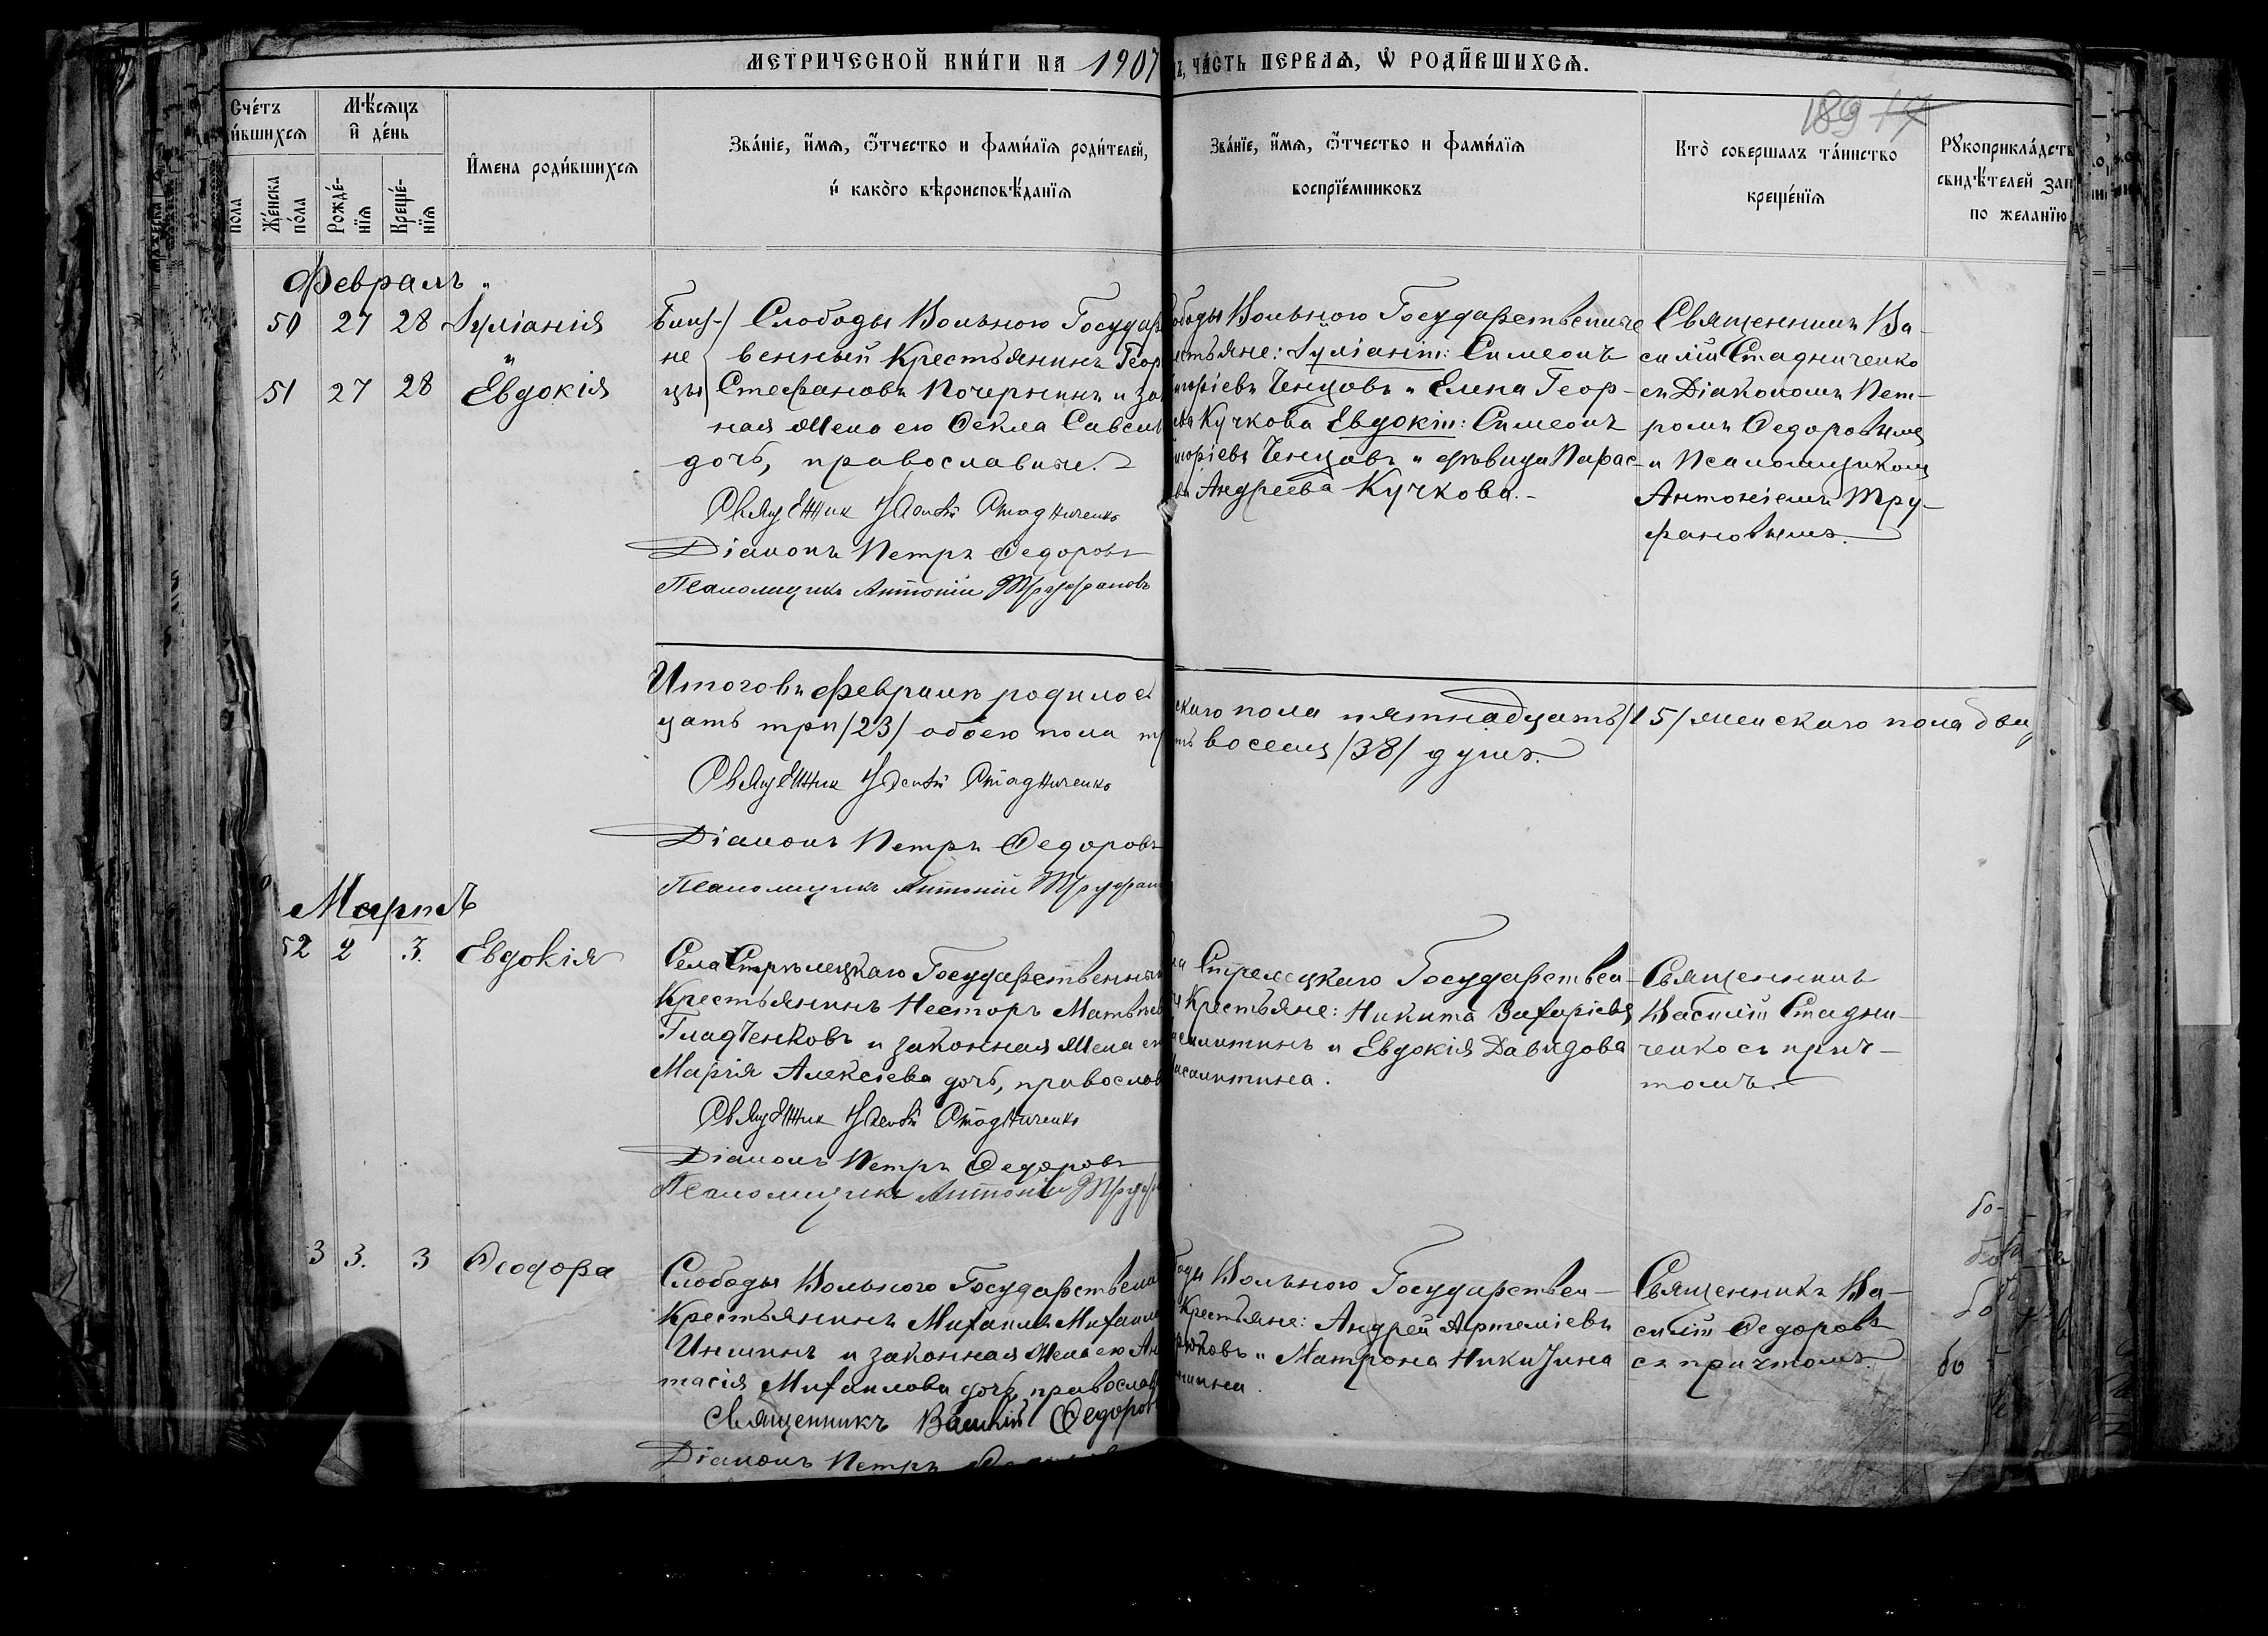 МЕТРИЧЕСКОЙ КНИ́ГИ НА 1907
ЧА́СТЬ ПЕРВАѦ, Ѡ҆ РОДИ́ВШИХСѦ.
189
Сче́тъ
и́вшихсѧ
пола
Же́нска по́ла
Мѣ́сѧцъ и҆ де́нь
Рожде́-нїѧ
Креще́-нїѧ
И҆мена роди́вшихсѧ
Зва́нїе, и҆́мѧ, ѻ҆́тчество и фами́лїѧ роди́телей,
и҆ како́го вѣроисповѣ́данїѧ
Зва́нїе, и҆́мѧ, ѻ҆́тчество и фами́лїѧ
воспрїе́мниковъ
Кто̀ совершалъ та́инство
креще́нїѧ
Рꙋкоприкла́дств
свидѣ́телей зап
по желанїю
Февраль
50 27 28 Іуліанія
"
51 27 28 Евдокія
Близ-
не
цы
Слободы Вольного Государ
венный Крестьянинъ Геор
Стефановъ Почернинъ и за
ная жена его Ѳекла Савел
дочь, православные.
Священник Василій Стадниченко
Діаконъ Петръ Ѳедоровъ
Псаломщикъ Антоній Труфановъ
ободы Вольного Государственные
стьяне: Іуліаніи: Симеонъ
игоріевъ Ченцовъ и Елена Геор-
ева Кучкова Евдокіи: Симеонъ
игоріевъ Ченцовъ и дѣвица Парас-
ва Андреева Кучкова.-
Священникъ Ва-
силій Стадниченко
съ Діакономъ Пет-
ромъ Ѳедоровымъ
и Псаломщикомъ
Антоніемъ Тру-
фановымъ.
Итого въ февралѣ родилос
скаго пола пятнадцать /15/ женскаго пола два
цать три /23/ обоего пола т
ть восемь /38/ душъ.
Священник Василій Стадниченко
Діаконъ Петръ Ѳедоровъ
Псаломщикъ Антоній Труфан
Мартъ
52 2 3. Евдокія
Села Стрѣлецкаго Государственный
Крестьянинъ Несторъ Матвѣев
Гладченковъ и законная жена ег
Марія Алексіева дочь, православ
Священник Василій Стадниченко
Діаконъ Петръ Ѳедоровъ
Псаломщикъ Антоній Труф
ла Стрелецкаго Государствен-
Крестьяне: Никита Захаріевъ
и Евдокія Давидова
Священникъ
Василій Стадни-
ченко съ прич-
томъ.
3 3. 3 Ѳеодора
Слободы Вольного Государствен
Крестьянинъ Михаилъ Михаил
Иншинъ и законная жена его Ан
тасія Михаилова дочь, православ
Священникъ Василій Ѳедоров
Діаконъ Петръ
боды Вольного Государствен-
Крестьяне: Андрей Артеміевъ
и Матрона Никитина
Священникъ Ва-
силій Ѳедоровъ
съ причтомъ.